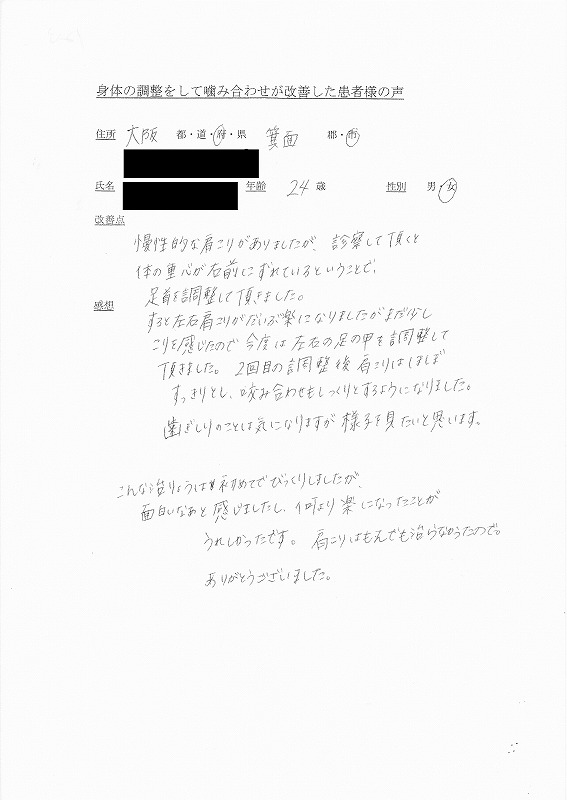 身体の調整をして噛み合わせが改善した患者様の声
住所 大阪 都・道・府・県 箕面 郡・市
氏名 年齢 24歳 性別 男・女
改善点
慢性的な肩こりがありましたが、診察して頂くと
体の重心が右前にずれているということで、
足首を調整して頂きました。
感想
すると左右肩こりがだいぶ楽になりましたがまだ少し
こりを感じたので今度は左右の足の甲を調整して
頂きました。2回目の調整後肩こりはほぼ
すっきりとし、咬み合わせもしっくりとするようになりました。
歯ぎしりのことは気になりますが様子を見たいと思います。
こんな治りょうは初めてでびっくりしましたが、
面白いなあと感じましたし、何より楽になったことが
うれしかったです。肩こりはもんでも治らなかったので。
ありがとうございました。